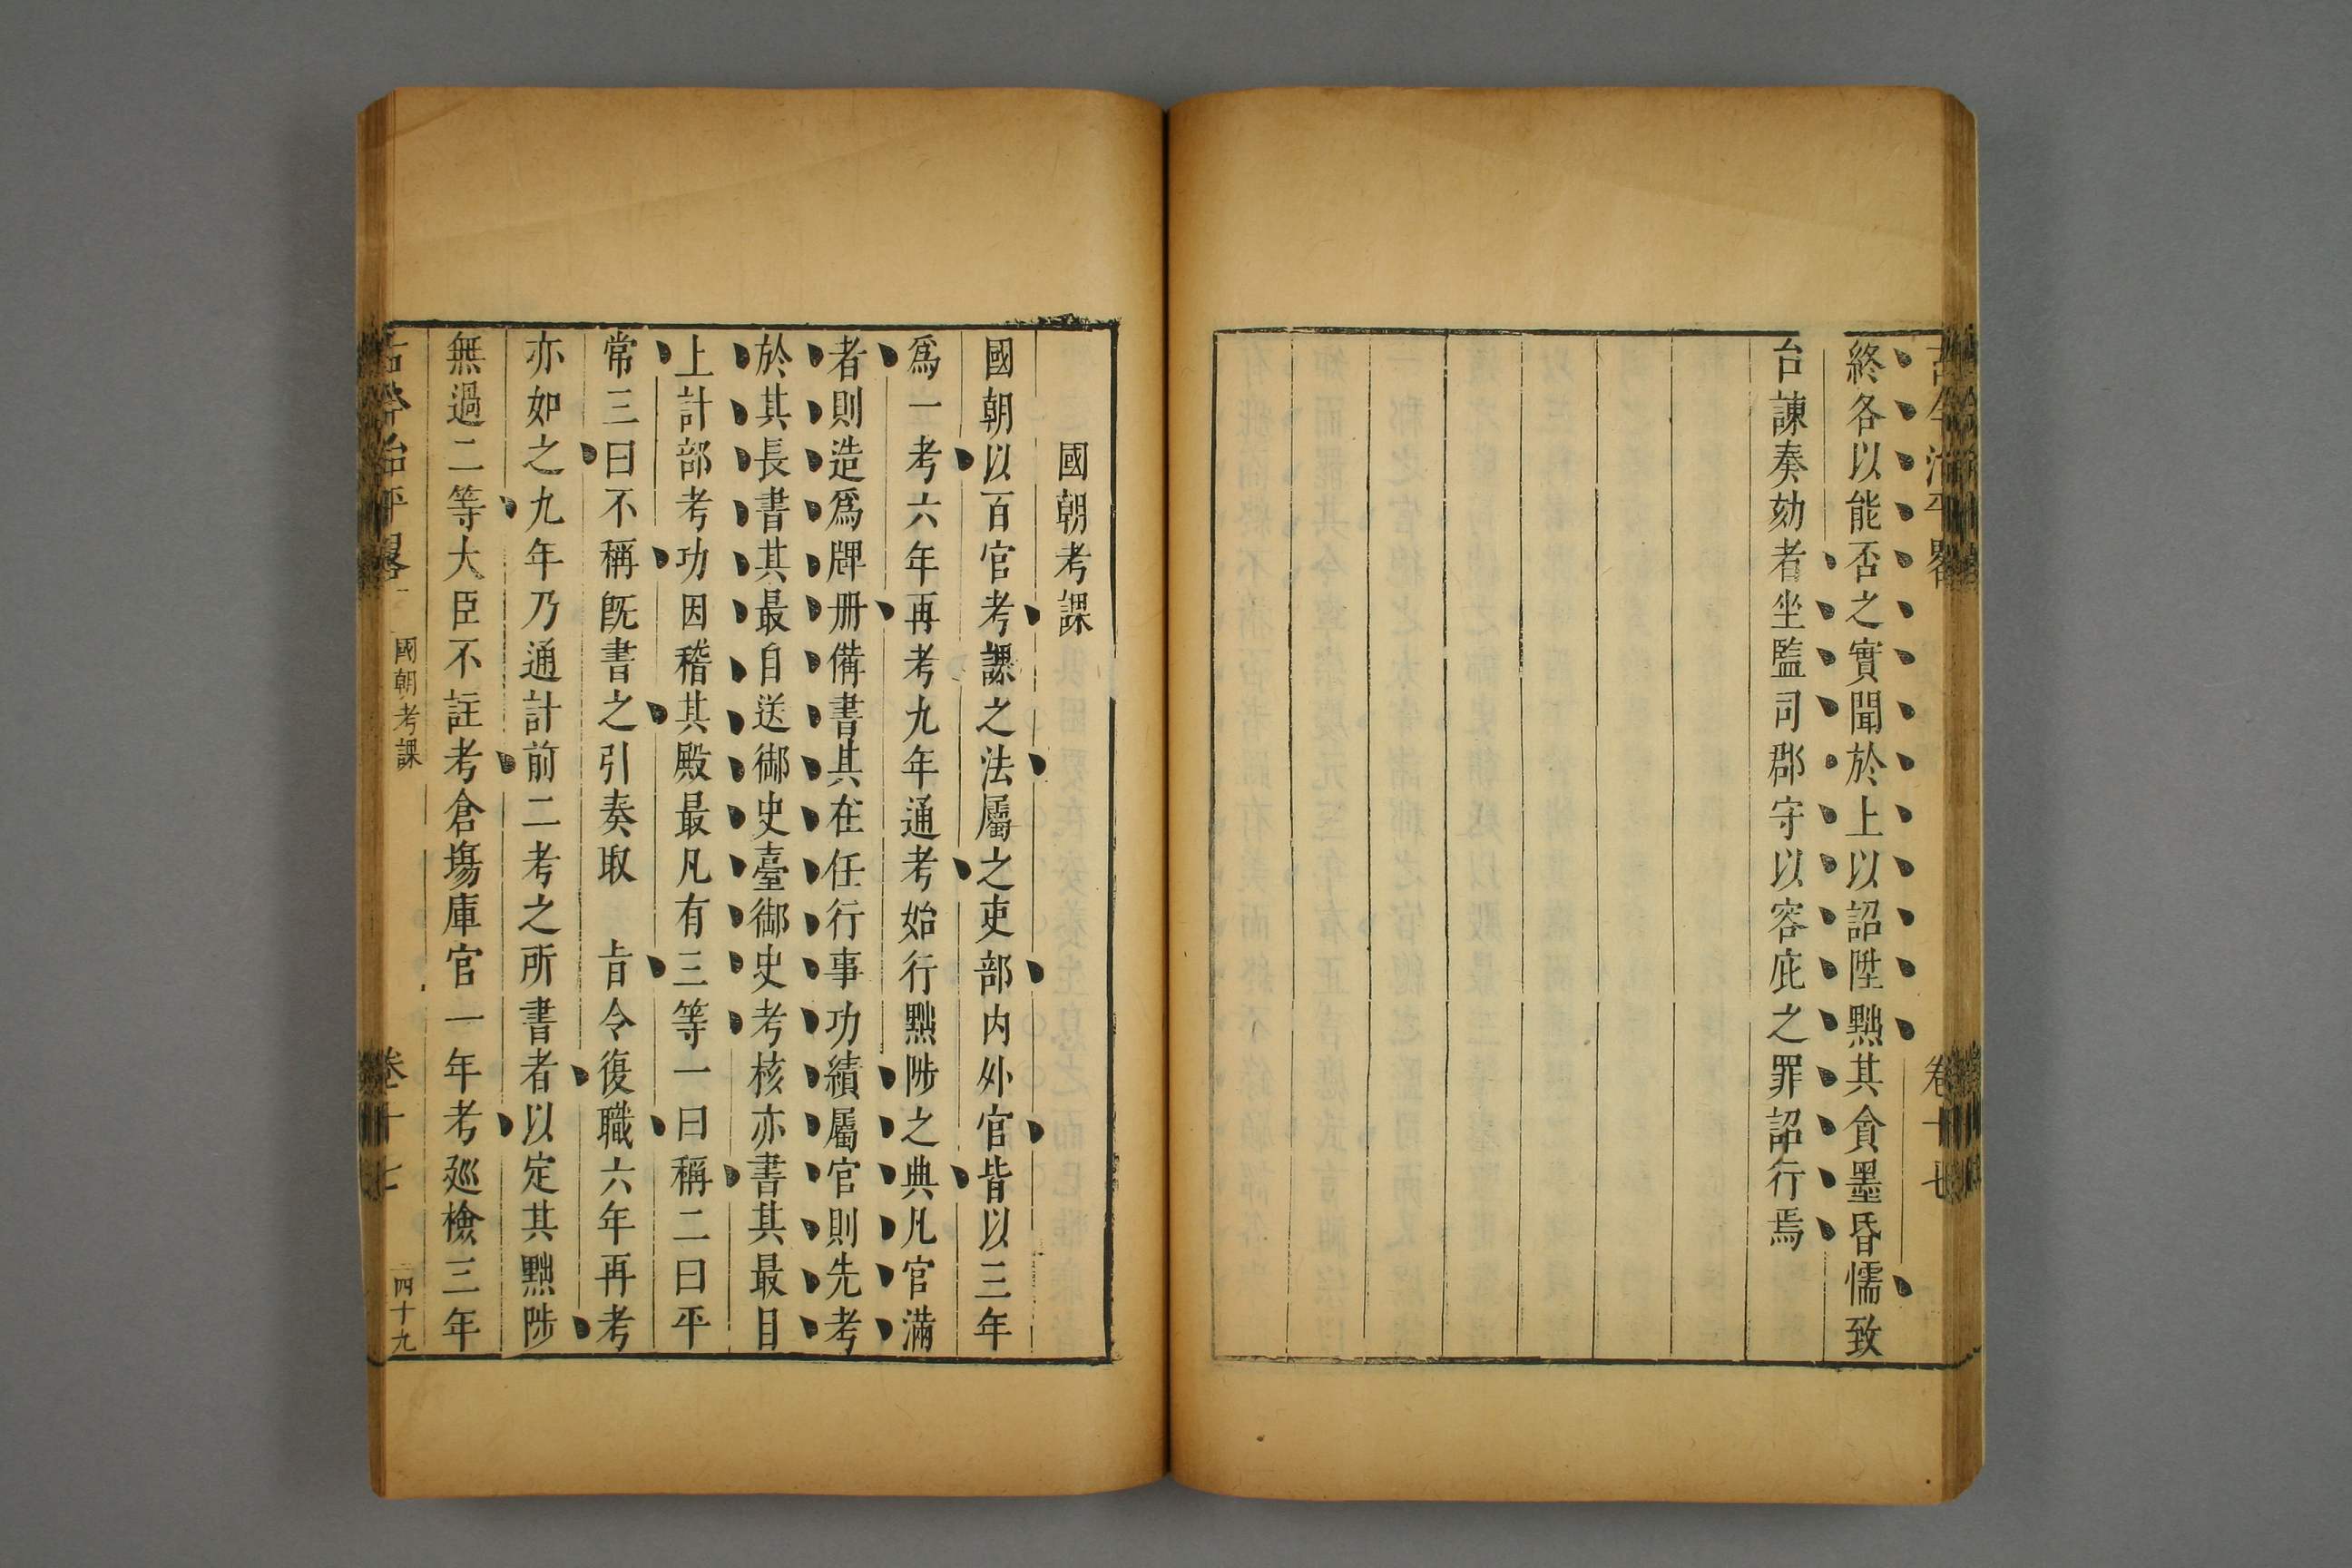 古今治平畧
卷十七
終各以能否之實聞於上以詔陞黜其貪墨昏懦致
台諫奏劾者坐監司郡守以容庇之罪詔行焉
國朝考課
國朝以百官考課之法屬之吏部内外官皆以三年
爲一考六年再考九年通考始行黜陟之典凡官滿
者則造爲牌册備書其在任行事功績屬官則先考
於其長書其最目送御史臺御史考核亦書其最目
上計部考功因稽其殿最凡有三等一曰稱二曰平
常三曰不稱旣書之引奏取 㫖令復職六年再考
亦如之九年乃通計前二考之所書者以定其黜陟
無過二等大臣不註考倉塲庫官一年考廵檢三年
古今治平畧
國朝考課
卷十七
四十九